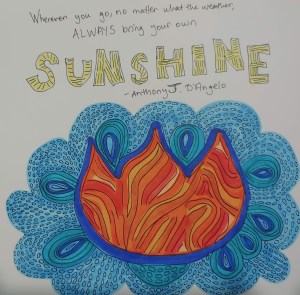 Wherever you go, no matter what the weather,
ALWAYS bring your own
SUNSHINE
- Anthony J. D'Angelo